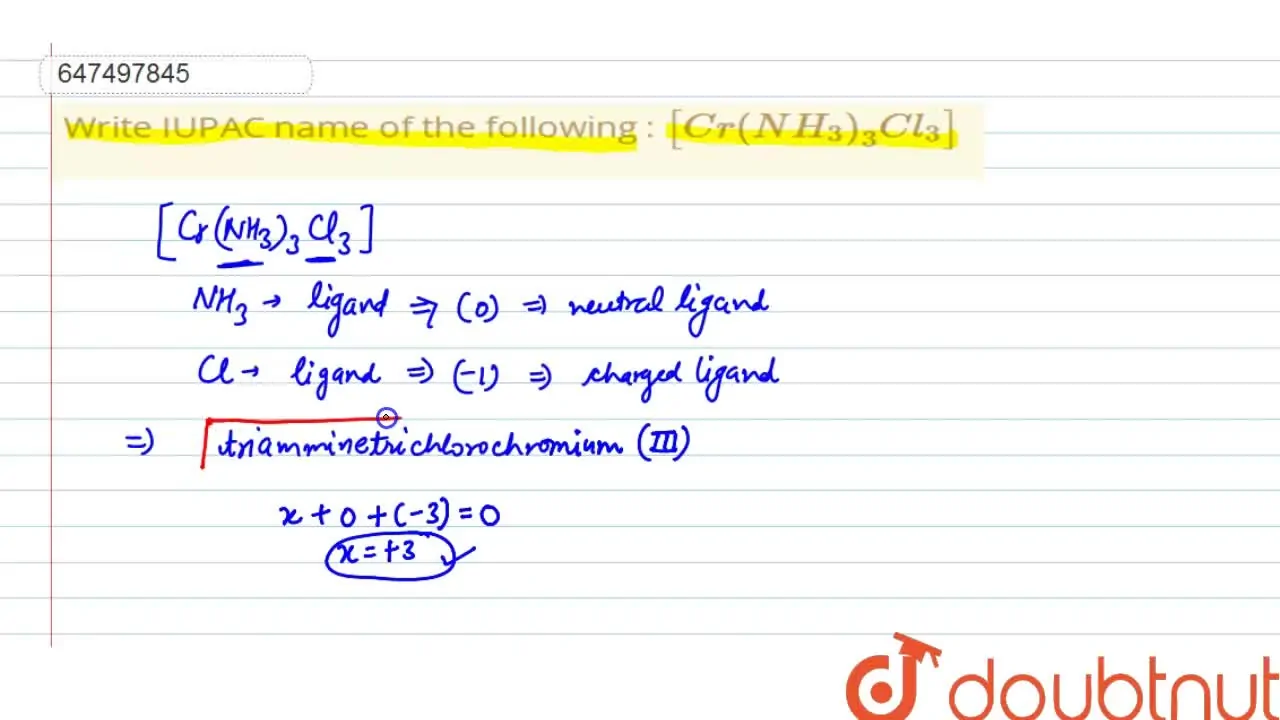 647497845
Write IUPAC name of the following : [Cr(NH₃)₃Cl₃]
[Cr(NH₃)₃Cl₃]
NH₃ → ligand ⇒ (0) ⇒ neutral ligand
Cl → ligand ⇒ (-1) ⇒ charged ligand
⇒ triamminetrichlorochromium (III)
x + 0 + (-3) = 0
x = +3 ✓
doubtnut